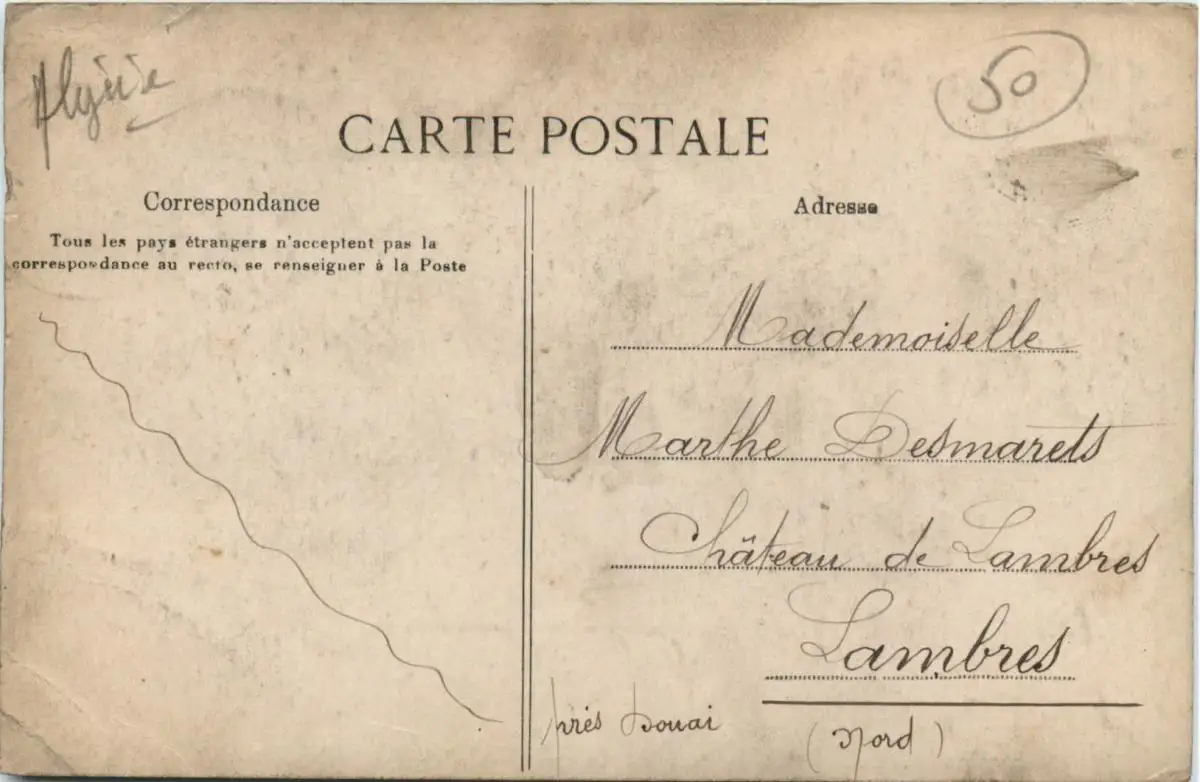 Algérie
50
CARTE POSTALE
Correspondance
Tous les pays étrangers n'acceptent pas la
correspondance au recto, se renseigner à la Poste
Adresse
Mademoiselle
Marthe Desmarets
Château de Lambres
Lambres
près Douai
(Nord)